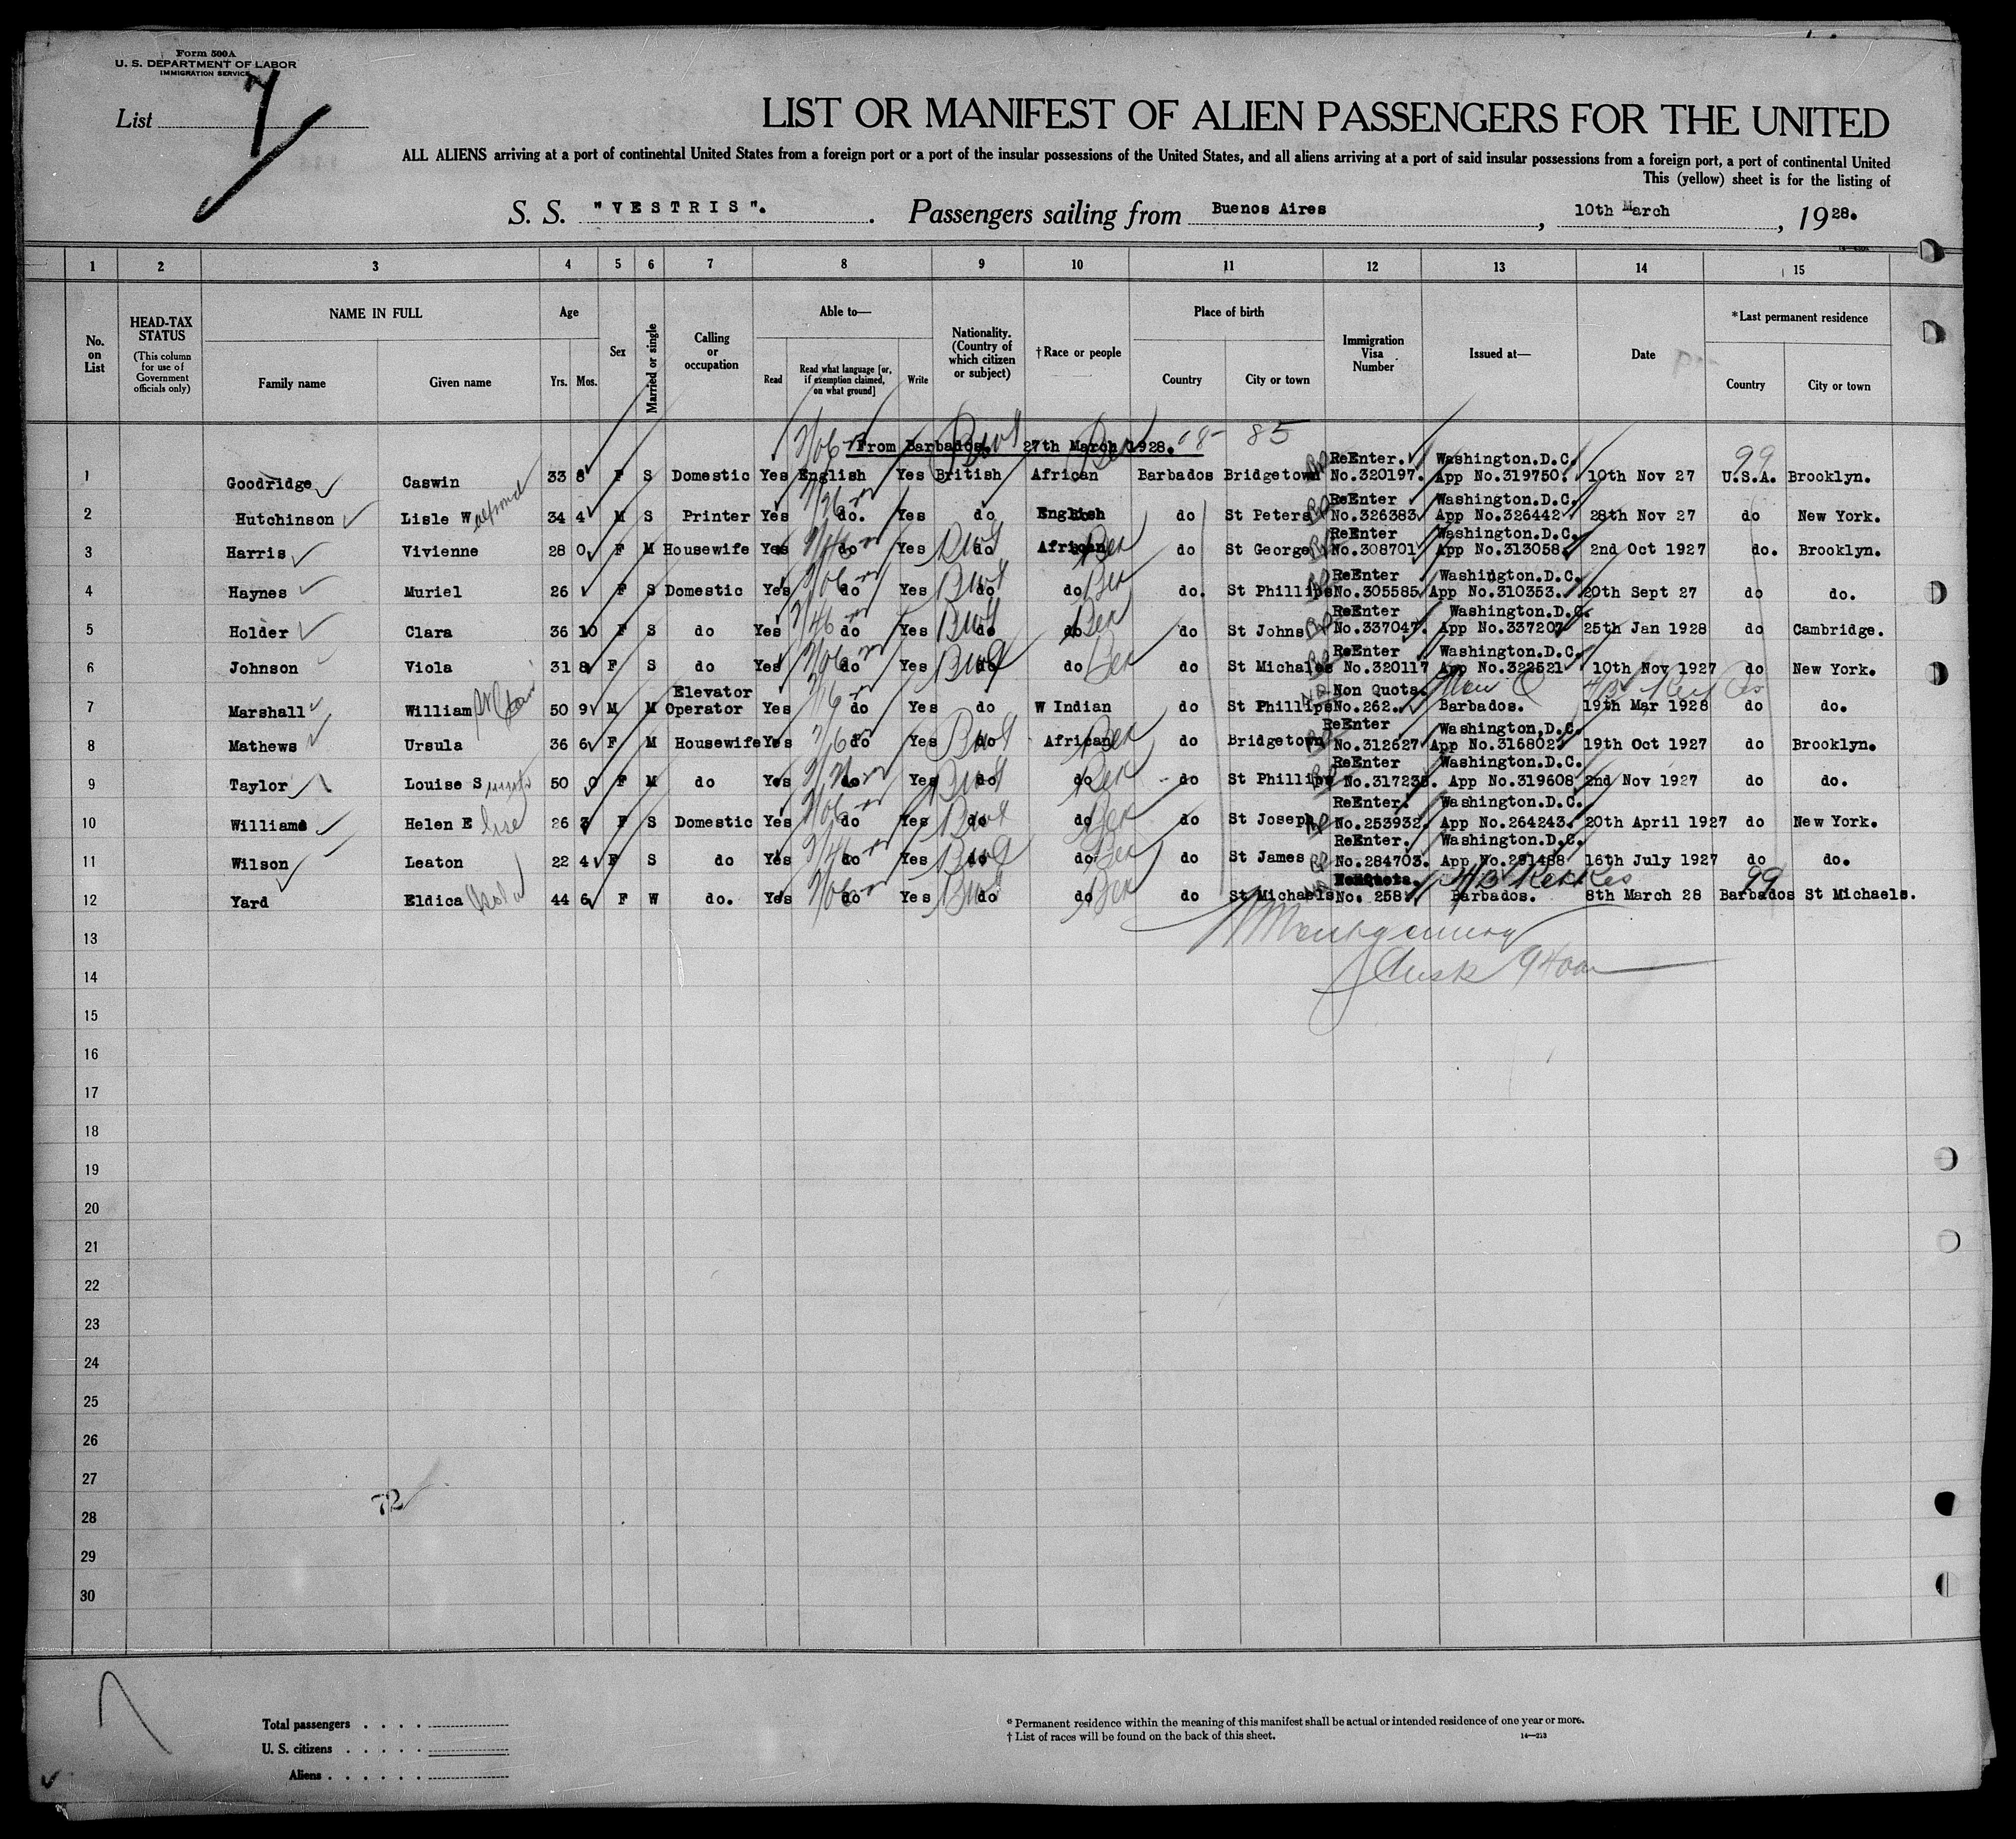 Form 500A
U. S. DEPARTMENT OF LABOR
IMMIGRATION SERVICE
List 7
LIST OR MANIFEST OF ALIEN PASSENGERS FOR THE UNITED
ALL ALIENS arriving at a port of continental United States from a foreign port or a port of the insular possessions of the United States, and all aliens arriving at a port of said insular possessions from a foreign port, a port of continental United
This (yellow) sheet is for the listing of
S. S. "VESTRIS". Passengers sailing from Buenos Aires, 10th March, 1928.
1 2 3 4 5 6 7 8 9 10 11 12 13 14 15
No. on List
HEAD-TAX STATUS
(This column for use of Government officials only)
NAME IN FULL
Family name Given name
Age
Yrs. Mos.
Sex
Married or single
Calling or occupation
Able to—
Read
Read what language [or, if exemption claimed, on what ground]
Write
Nationality. (Country of which citizen or subject)
†Race or people
Place of birth
Country City or town
Immigration Visa Number
Issued at—
Date
*Last permanent residence
Country City or town
From Barbados. 27th March 1928. 85
ReEnter. Washington.D.C. 99
1 Goodridge Caswin 33 8 F S Domestic Yes English Yes British African Barbados Bridgetown No.320197. App No.319750. 10th Nov 27 U.S.A. Brooklyn.
ReEnter Washington.D.C.
2 Hutchinson Lisle W 34 4 M S Printer Yes do. Yes do English do St Peters No.326383 App No.326442 28th Nov 27 do New York.
ReEnter Washington.D.C.
3 Harris Vivienne 28 0 F M Housewife Yes do Yes do African do St George No.308701 App No.313058. 2nd Oct 1927 do. Brooklyn.
ReEnter Washington.D.C.
4 Haynes Muriel 26 F S Domestic Yes do Yes do do do. St Phillips No.305585 App No.310353. 20th Sept 27 do do.
ReEnter Washington.D.C.
5 Holder Clara 36 10 F S do Yes do Yes do do do St Johns No.337047. App No.337207 25th Jan 1928 do Cambridge.
ReEnter Washington.D.C.
6 Johnson Viola 31 8 F S do Yes do Yes do do do St Michales No.320117 App No.322521 10th Nov 1927 do New York.
Elevator Non Quota.
7 Marshall William 50 9 M M Operator Yes do Yes do W Indian do St Phillips No.262. Barbados. 19th Mar 1928 do do.
ReEnter Washington.D.C.
8 Mathews Ursula 36 6 F M Housewife Yes do Yes do African do Bridgetown No.312627 App No.316802 19th Oct 1927 do Brooklyn.
ReEnter Washington.D.C.
9 Taylor Louise S 50 0 F M do Yes do Yes do do do St Phillips No.317235. App No.319608 2nd Nov 1927 do do.
ReEnter. Washington.D.C.
10 Williams Helen E 26 3 F S Domestic Yes do Yes do do do St Joseph No.253932. App No.264243. 20th April 1927 do New York.
ReEnter. Washington.D.C.
11 Wilson Leaton 22 4 F S do Yes do Yes do do do St James No.284703. App No.291488 16th July 1927 do do.
NonQuota. 99
12 Yard Eldica 44 6 F W do. Yes do Yes do do do St Michaels No. 258. Barbados. 8th March 28 Barbados St Michaels.
13 Montgomery
14
15
16
17
18
19
20
21
22
23
24
25
26
27
72
28
29
30
Total passengers
U. S. citizens
Aliens
* Permanent residence within the meaning of this manifest shall be actual or intended residence of one year or more.
† List of races will be found on the back of this sheet.
14—213